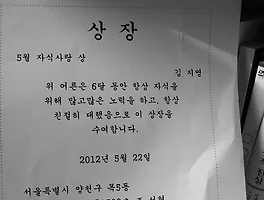 상 장
5월 자식사랑 상
김 지영
위 어른은 6달 동안 항상 자식을
위해 많고많은 노력을 하고, 항상
친절히 대했음으로 이 상장을
수여합니다.
2012년 5월 22일
서울특별시 양천구 목5동